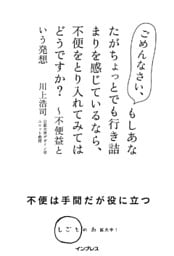 ごめんなさい、もしあな
たがちょっとでも行き詰
まりを感じているなら、
不便をとり入れてみては
どうですか? ~不便益と
いう発想
川上浩司
不便は手間だが役に立つ
しごとのわ
インプレス